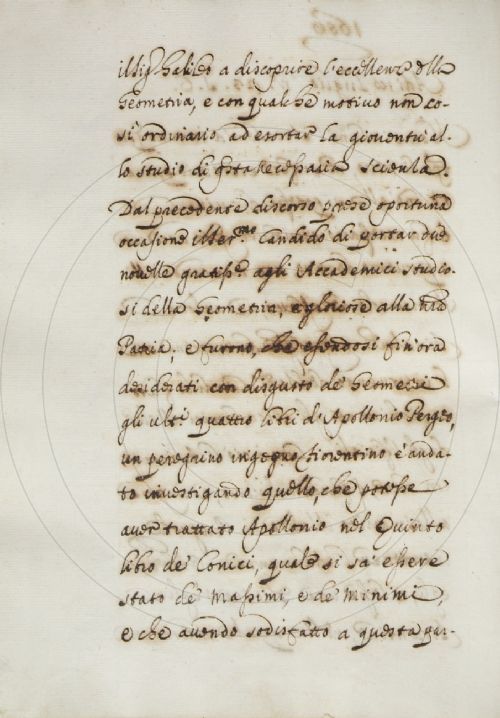 illig. halito a discoprire l'eccellenz della
Geometria, e con qualche motivo non co-
sì ordinario ad esortar la gioventù al-
lo studio di questa necessaria scienza.
Dal precedente discorso prese oportuna
occasione il Ser.mo Candido di portar due
novelle gratiss.e agli Accademici studio-
si della Geometria, e gloriose alla nra
Patria; e furono, che essendosi fin'ora
desiderati con disgusto de' Geometri
gli ulti quattro libri d'Apollonio Pergeo,
un peregrino ingegno fiorentino è anda-
to investigando quello, che potesse
aver trattato Apollonio nel Quinto
libro de' Conici, quale si sà essere
stato de' Massimi, e de' Minimi,
e che avendo sodisfatto a questa par-